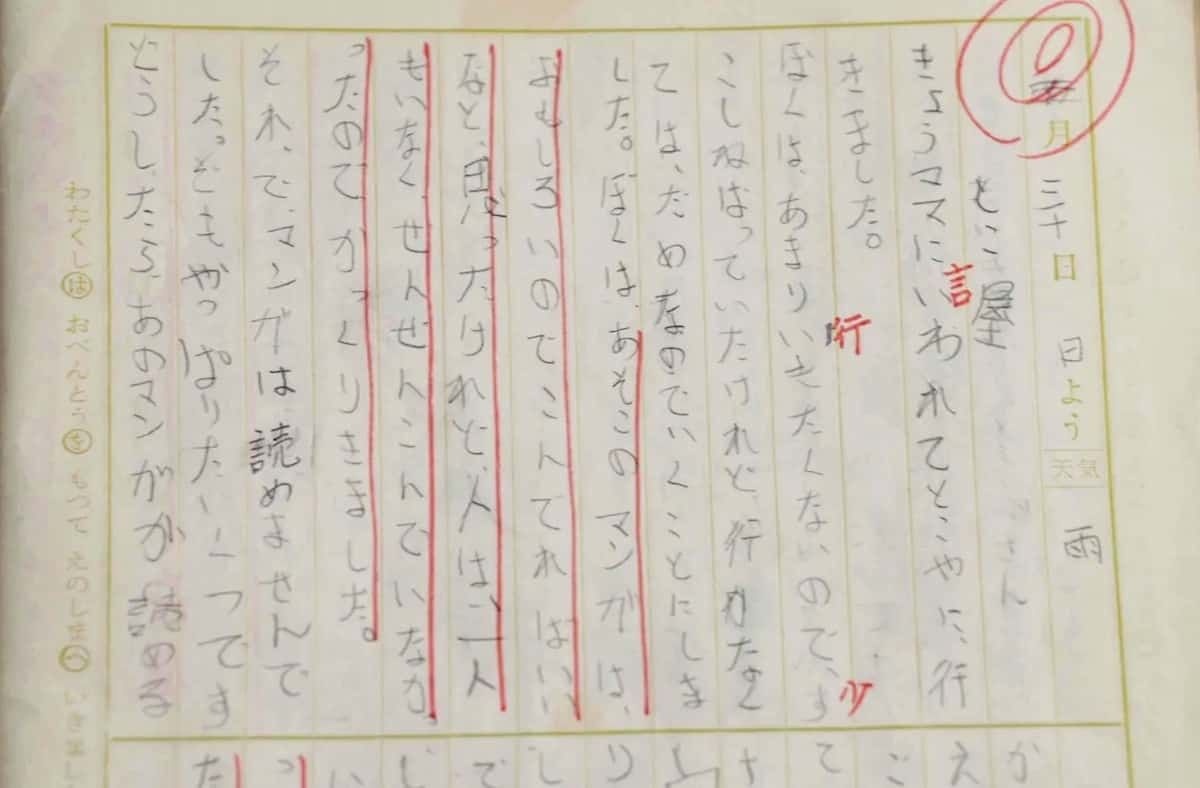 月 三十日 日よう 天気 雨
とこ屋
きょうママにいわれてとこやに、行
言
きました。
行
ぼくは、あまりいきたくないので、す
少
こしねばっていたけれど、行かなく
ては、だめなのでいくことにしま
した。ぼくは、あそこのマンガは、
おもしろいのでこんでればいい
なと、思ったけれど、人は、一人
もいなく、せんぜんこんでいなか
ったのでがっくりきました。
それで、マンガは読めませんで
した。でもやっぱりたいくつです
どうしたら、あのマンガが読める
わたくしはおべんとうをもってえのしまへ
か
え
ご
て
さ
り
し
で
じ
い
っ
た